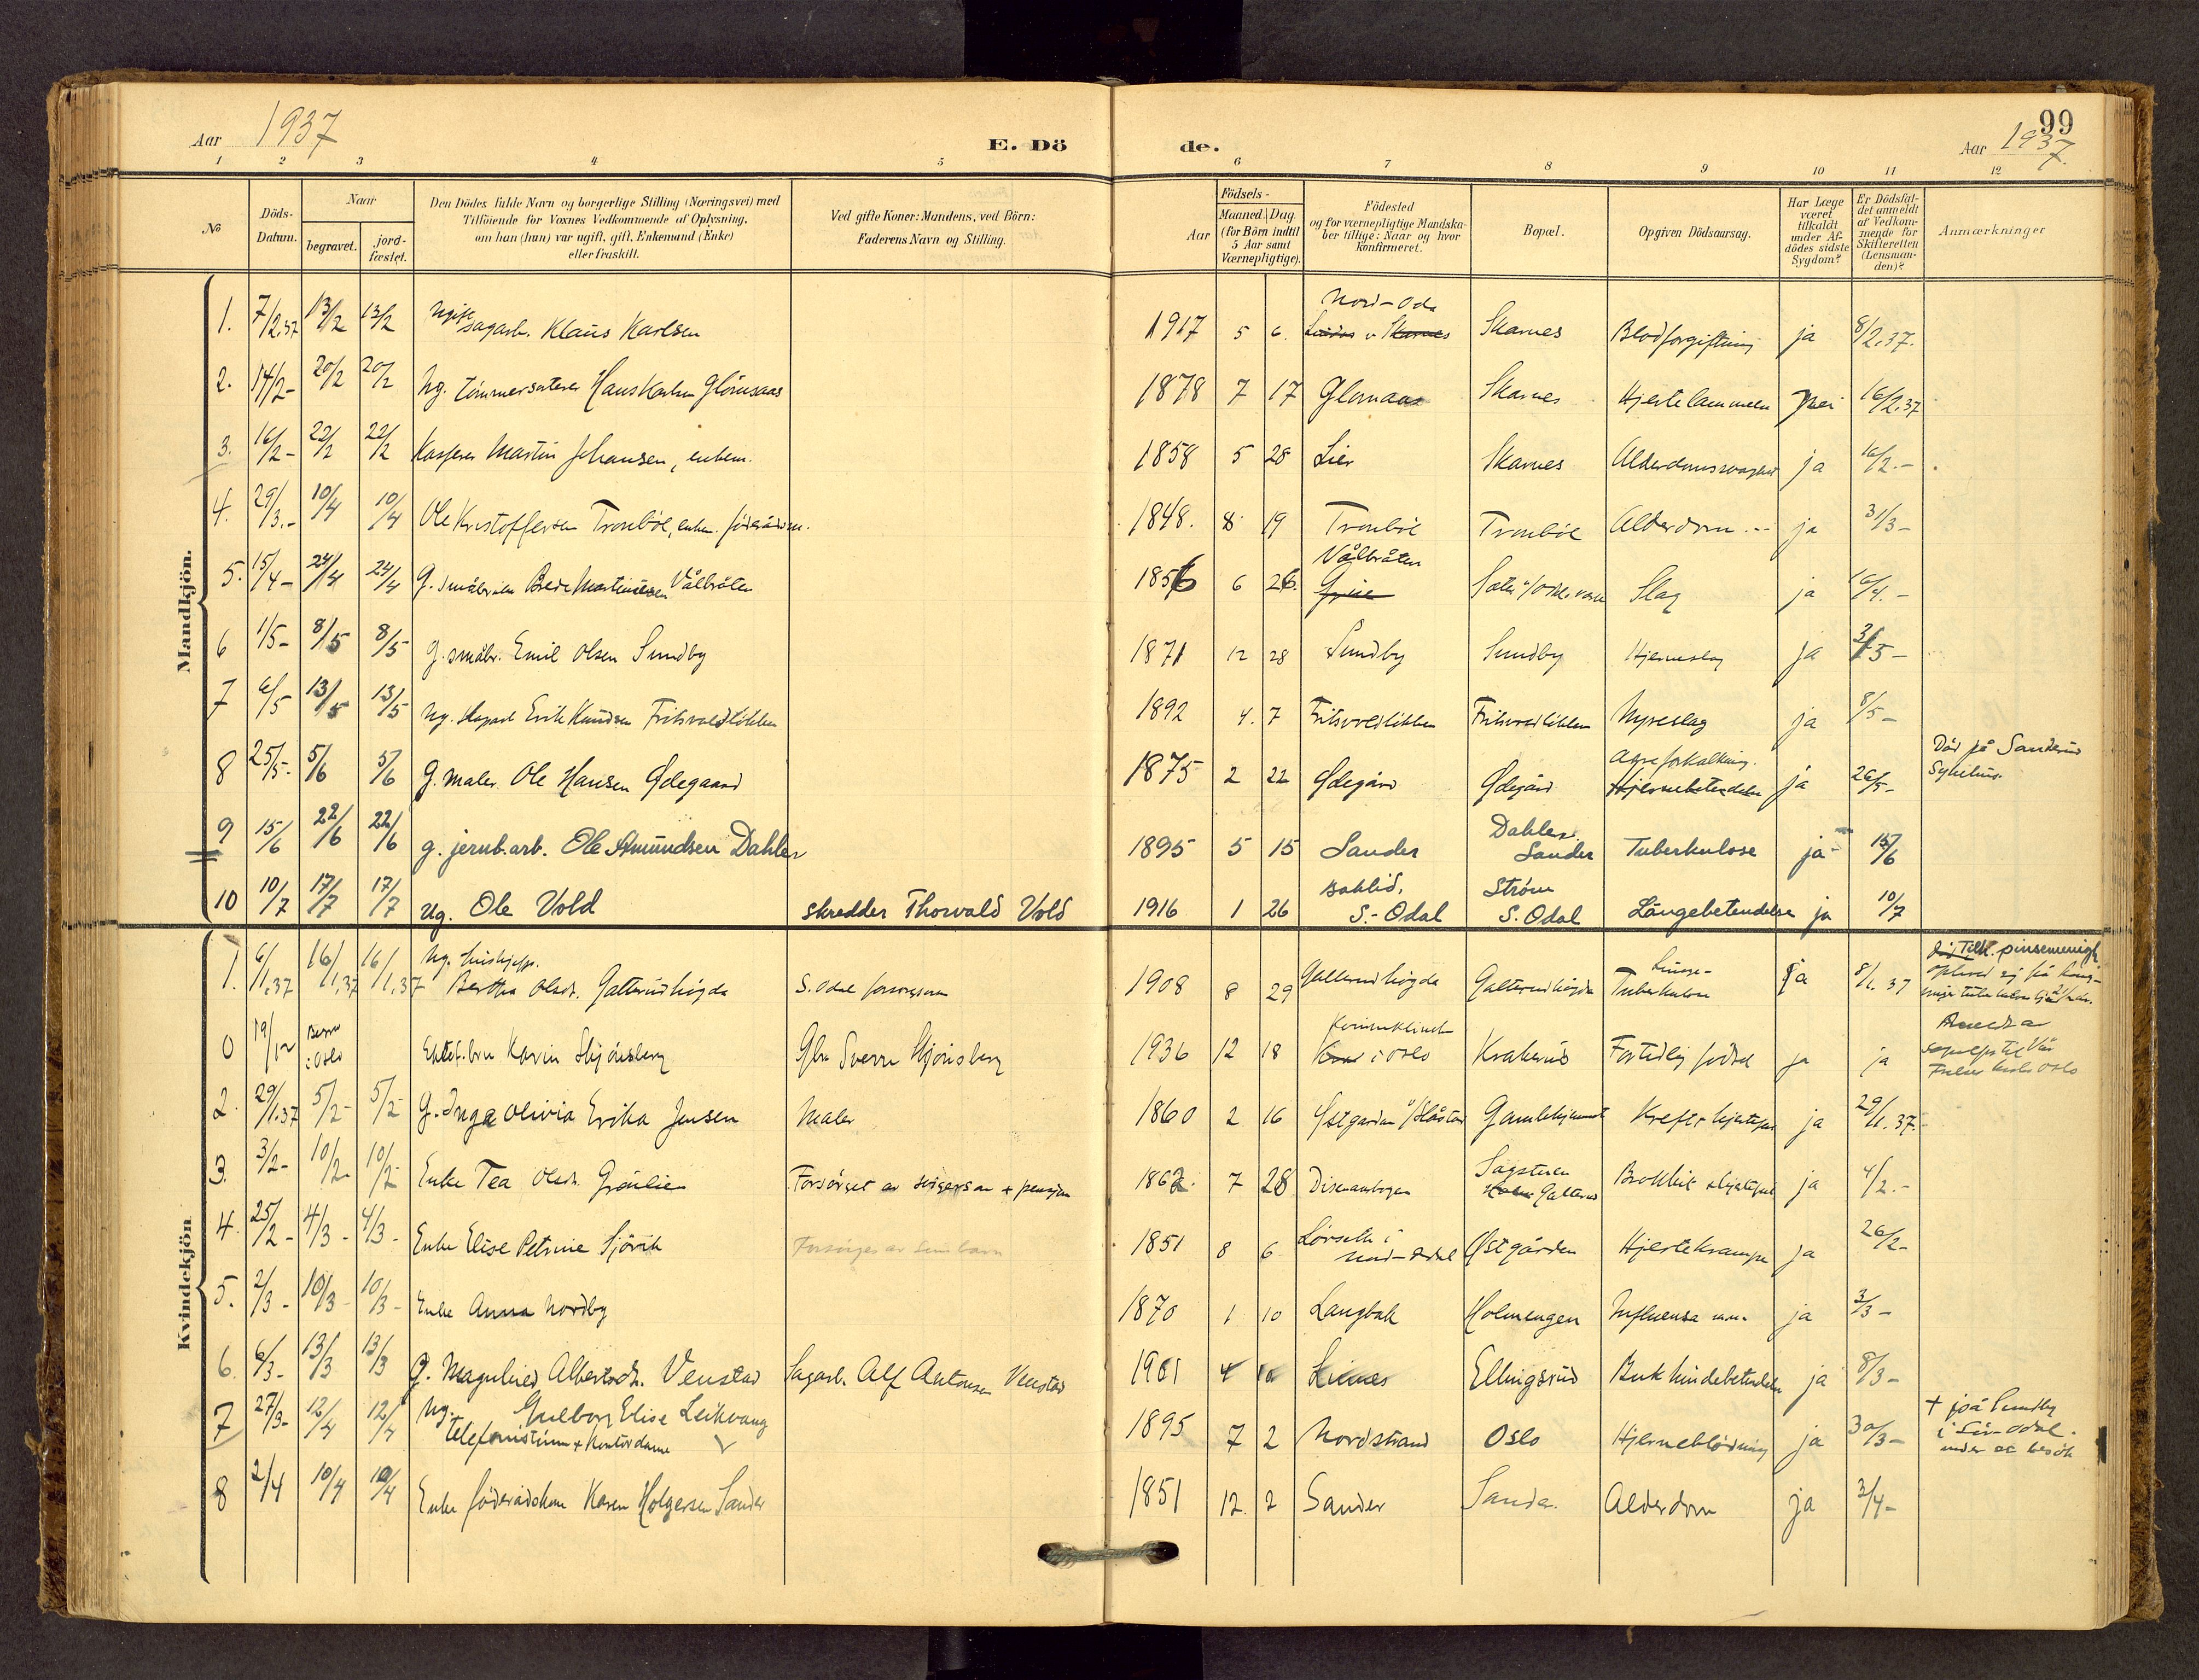 Aar 1937
E. Dö
de.
99
Aar 1937.
1 2 3 4 5 6 7 8 9 10 11 12
№
Döds-
Datum.
Naar
begravet.
jord-
fæstet.
Den Dödes fulde Navn og borgerlige Stilling (Næringsvei) med
Tilföiende for Voxnes Vedkommende af Oplysning,
om han (hun) var ugift, gift, Enkemand (Enke)
eller fraskilt.
Ved gifte Koner: Mandens, ved Börn:
Faderens Navn og Stilling.
Födsels-
Aar
Maaned. Dag.
(for Börn indtil
5 Aar samt
Værnepligtige).
Födested
og for værnepligtige Mandska-
ber tillige: Naar og hvor
konfirmeret.
Bopæl.
Opgiven Dödsaarsag.
Har Læge
været
tilkaldt
under Af-
dödes sidste
Sygdom?
Er Dödsfal-
det anmeldt
af Vedkom-
mende for
Skifteretten
(Lensman-
den)?
Anmærkninger
Mandkjön.
Nord-Oda
1. 7/2.37 13/2 13/2 ugift sagarb. Klaus Karlsen 1917 5 6. Skarnes Skarnes Blodforgiftning ja 8/2.37.
2. 14/2- 20/2 20/2 Ug. Tømmersorterer Hans Karlsen Glömsaas 1878 7 17 Glomaas Skarnes Hjertelammelse nei 16/2.37
3. 16/2- 22/2 22/2 Kasserer Martin Johansen, enkem. 1858 5 28 Lier Skarnes ja 16/2.-
4. 29/3.- 10/4 10/4 Ole Kristoffersen Tronböl, enkem. föderådsm. 1848. 8 19 Tronböl Tronböl Alderdom ja 31/3-
Vålbråten
5. 15/4- 24/4 24/4 G. småbruker Martinsen Vålbråten 1856 6 26. Slag ja 16/4.-
6 1/5- 8/5 8/5 g. småbr. Emil Olsen Sundby 1871 12 28 Sundby Sundby Hjerneslag ja 3/5-
7 6/5 13/5 13/5 Ug. Erik Knudsen 1892 4. 7 Nyreslag ja 8/5-
Åreforkalkning.
8 25/5- 5/6 5/6 G. maler Ole Hansen Ødegaard 1875 2 22 Ødegård Ødegård Hjernebetendelse ja 26/5- Död på Sanderud
Sykehus.
Dahlen
9 15/6 22/6 22/6 g. jernb.arb. Ole Amundsen Dahlen 1895 5 15 Sander Sander Tuberkulose ja- 15/6
Baklid, Ström
10 10/7 17/7 17/7 Ug. Ole Vold skredder Thorvald Vold 1916 1 26 S.-Odal S. Odal Lungebetendelse ja 10/7
Kvindekjön
Ug. hushjelp. Lunge-
1. 6/1.37 16/1,37 16/1,37 Bertha Olsdt. Galterudhögda S. Odal forsorgsvesen 1908 8 29 Galterudhögda Galterudhögda Tuberkulose ja 8/1. 37 Tilh. pinsemenigh.
0 19/12 i Oslo Karin Skjönsberg Sverre Skjönsberg 1936 12 18 i Oslo Krakerud Fortidlig födsel ja ja
Oslo
2. 29/1.37 5/2- 5/2- G. Inga Olivia Erika Jensen Maler 1860 2 16 Gamlehjemmet Kreft + hjertefeil ja 29/1.37.-
Sagstuen
3. 3/2- 10/2- 10/2- Enke Tea Olsdt. Grönlien Forsörget av svigersön + pensjon 1862. 7 28 Galterud ja 4/2.-
4. 25/2- 4/3- 4/3- Enke Elise Petrine Sjövik Forsörges av sine barn 1851 8 6 Lörseth i
Nord-Odal Østgården Hjertekrampe ja 26/2-
5. 2/3- 10/3- 10/3- Enke Anna Nordby 1870 1 10 Langbak Holmengen Influensa m.m. ja 3/3-
6. 6/3- 13/3 13/3 G. Magnhild Albertsdt. Venstad Sagarb. Alf Antonsen Venstad 1901 4 Ellingsrud Bukhindebetendelse ja 8/3-
7 27/3- 12/4 12/4 Ug. Gulborg Elise Leikvang
Telefonistinne + Kontordame 1895 7 2 Nordstrand Oslo Hjerneblödning ja 30/3- + på Sundby
i Sör-Odal.
under et besök
8 2/4 10/4 10/4 Enke föderådskone Karen Holgersen Sander 1851 12. 2 Sander Sander Alderdom ja 3/4-